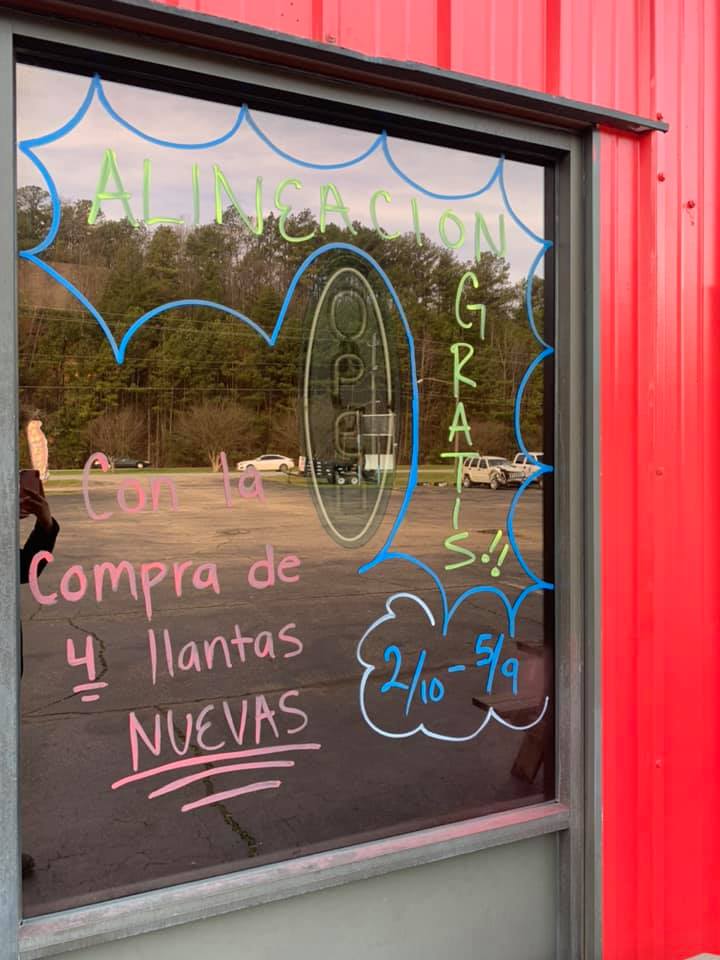 ALINEACION
GRATIS!!
OPEN
Con la
Compra de
4 llantas
NUEVAS
2/10 - 5/9